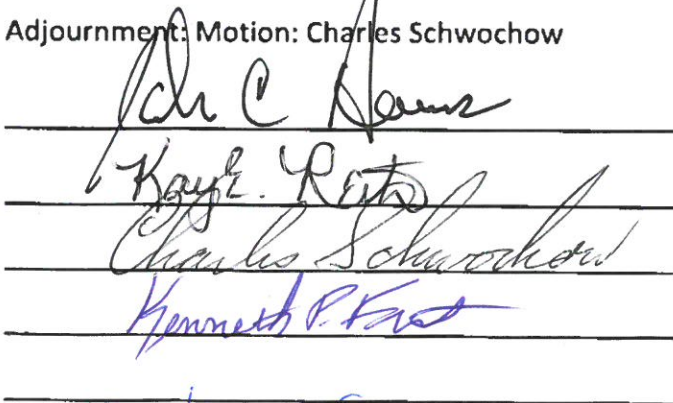 Adjournment: Motion: Charles Schwochow
C
Kay E. Reiter
Charles Schwochow
Kenneth P.